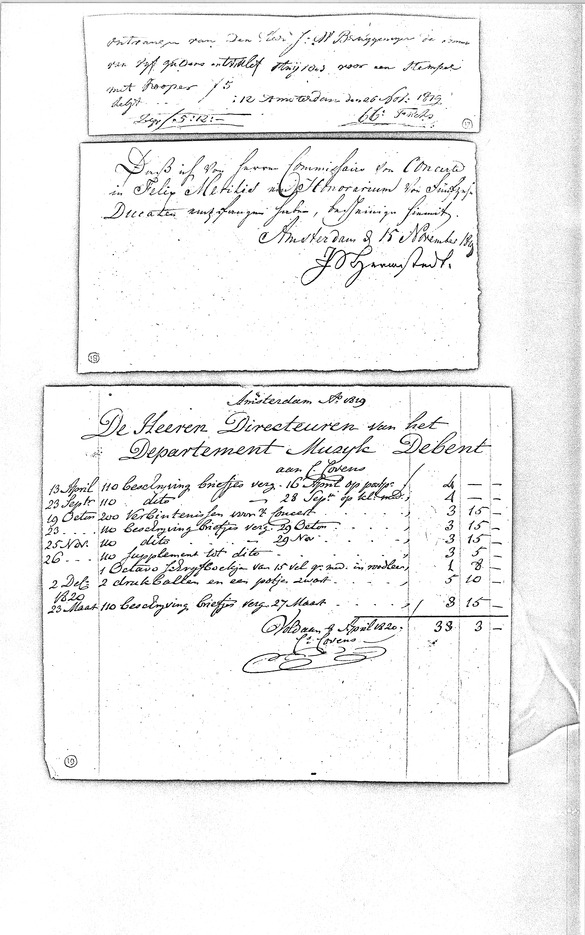 ontvangen van den Heer J: M Bruggemeyer de somma
van vyf guldens twaalf stuyvers voor een Stempel
met kooper f 5
: 12 Amsterdam den 26 Nov: 1819
Zegge f 5:12:—
17
Daß ich von Herrn Commissair von Concerte
in Felix Meritis ein Honorarium von
Ducaten empfangen habe, bescheinige hiemit.
Amsterdam d 15 November 1819
J S Hermstedt.
18
Amsterdam Ao. 1819
De Heeren Directeuren van het
Departement Muzyk Debent
aan C. Covens
13 April 110 beschryving briefjes verg. 16 April op postp. f 4 — —
23 Septr 110 dito — 28 Septr op kl. med. 4 — —
19 Octon 200 Verbintenissen voor 't Concert 3 15 —
23 110 beschryving briefjes verg. 29 Octon 3 15 —
25 Nov. 110 dito — 29 Nov. 3 15 —
26 110 Supplement tot dito 3 5 —
1 Octavo Schryfboekjen van 15 vel gr. med. in rood leer 1 8 —
2 Dec. 2 drukballen en een potje zwart 5 10 —
1820
23 Maart 110 beschryving briefjes verg. 27 Maart f 3 15 —
Voldaan April 1820. 33 3 —
C. Covens
19